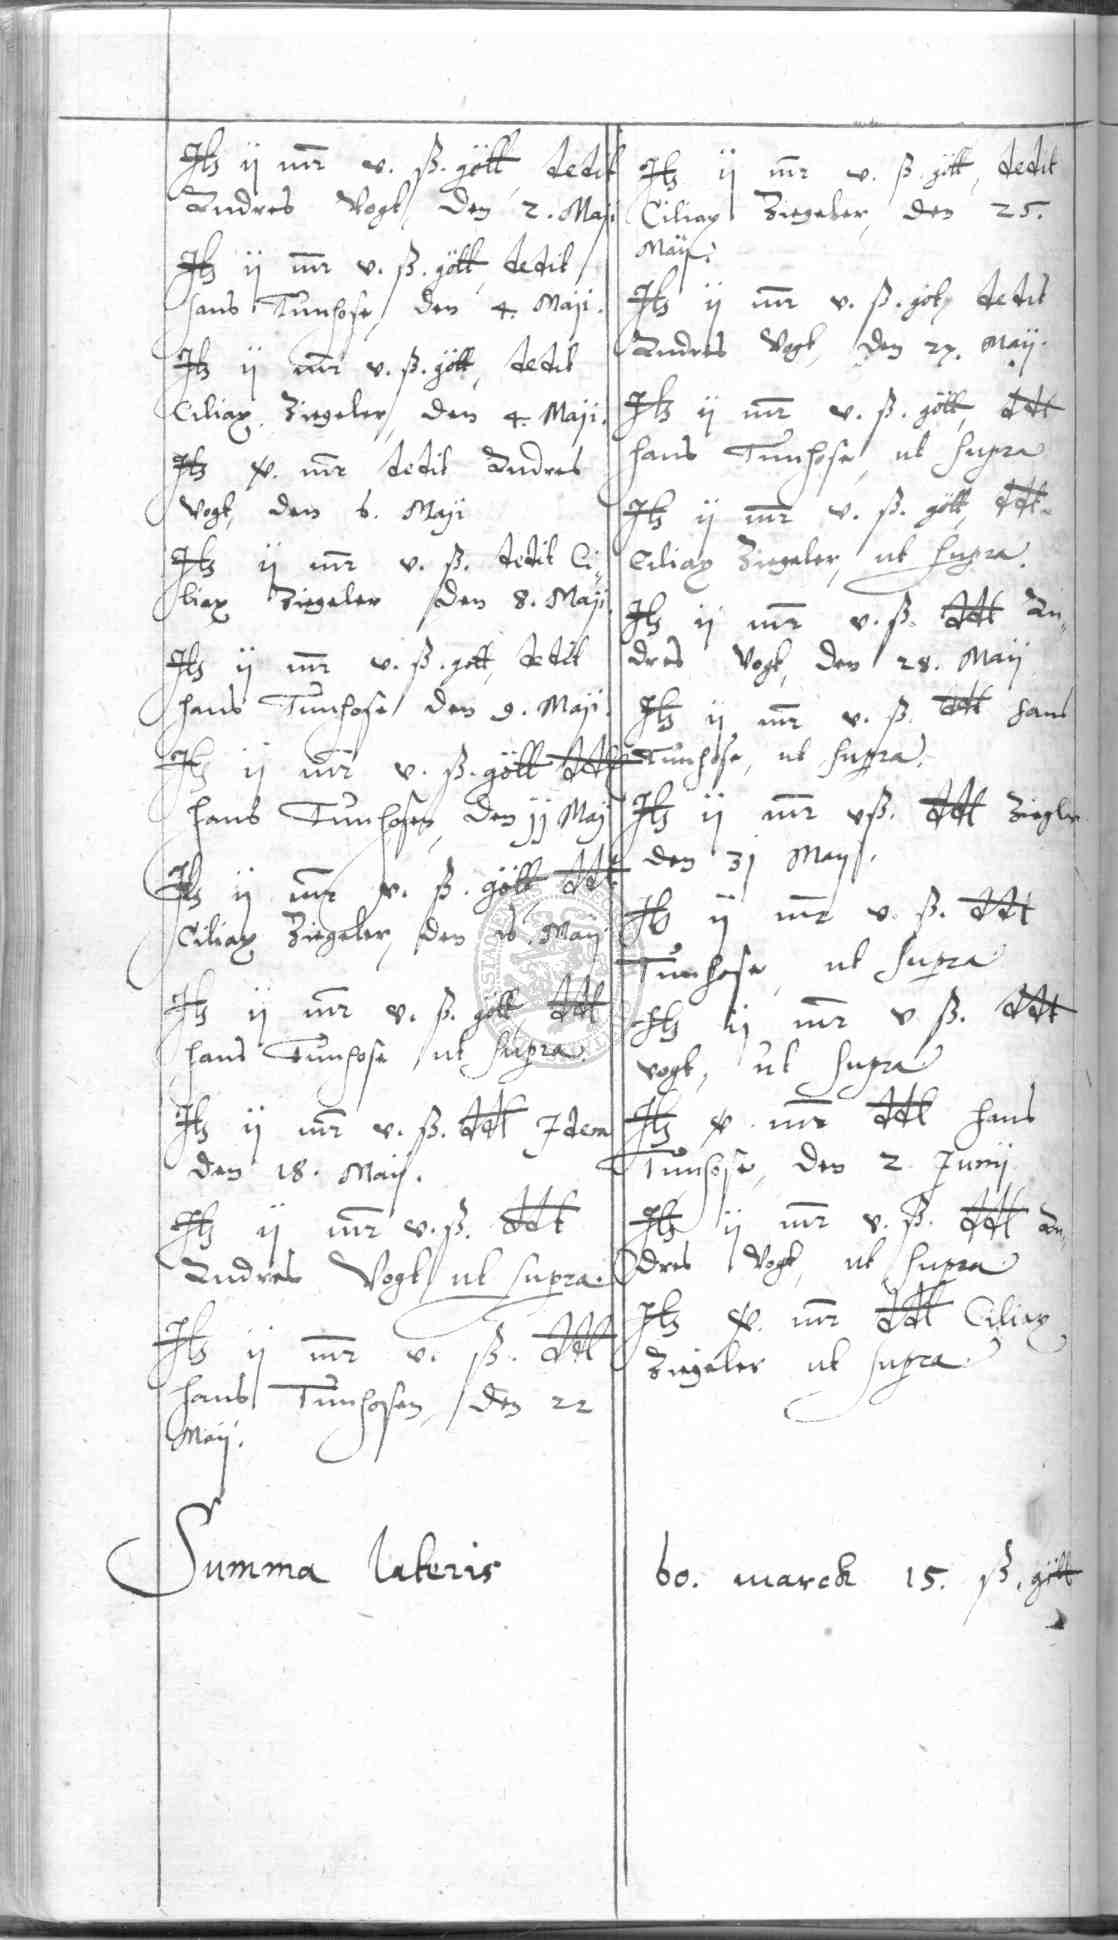 Itz ij mr v. ß. gött, dedit
Andres Vogt, den 2. Maji
Itz ij mr v. ß. gött, dedit
Hans Tunhose, den 4. Maji.
Itz ij mr v. ß. gött, dedit
Ciliax Ziegeler, den 4. Maji.
Itz mr dedit Andres
Vogt, den 6. Maji
Itz ij mr v. ß. dedit Ci,,
liax Ziegeler den 8. Maji.
Itz ij mr v. ß. gött, dedit
Hans Tunhose den 9. Maji.
Itz ij mr v. ß. gött ddt
Hans Tunhosen, den jj Maij
Itz ij mr v. ß. gött ddt
Ciliax Ziegeler, den Maij
Itz ij mr v. ß. gött ddt
Hans Tunhose ut supra.
Itz ij mr v. ß. ddt Idem
den 18. Maij.
Itz ij mr v. ß. ddt
Andres Vogt ut supra.
Itz ij mr v. ß. ddt
Hans Tunhosen, den 22
Maij.
Itz ij mr v. ß. gött, dedit
Ciliax Ziegeler, den 25.
Maij.
Itz ij mr v. ß. gött dedit
Andres Vogt, den 27. Maij.
Itz ij mr v. ß. gött, ddt
Hans Tunhose, ut supra
Itz ij mr v. ß. gött, ddt
Ciliax Ziegeler, ut supra.
Itz ij mr v. ß. ddt An,,
dres Vogt, den 28. Maij
Itz ij mr v. ß. ddt Hans
Tunhose, ut supra.
Itz ij mr vß. ddt Ziegler
den 3j Maij.
Itz ij mr v. ß. ddt
Tunhose, ut supra
Itz ij mr v. ß. ddt
Vogt, ut supra
Itz mr ddt Hans
Tunhose, den 2. Junij
Itz ij mr v. ß. ddt An,,
dres Vogt, ut supra
Itz mr ddt Ciliax
Ziegeler ut supra.
Summa lateris 60. marck 15. ß. gött